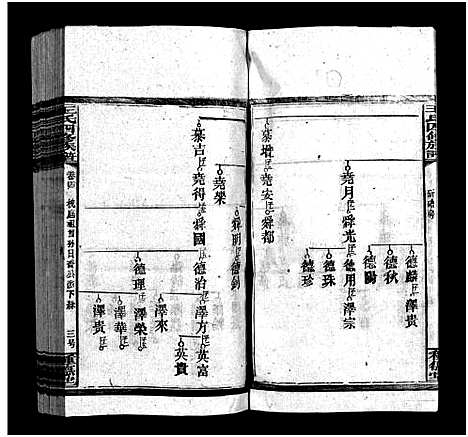 王氏四修族譜
慕增 堯安 舜都
堯月 舜光 德用 澤宗
德珠
德珍
德麟 澤貴
德秋
德陽
王氏四修族譜
卷四
三号
慕吉 堯得 舜國 德治 澤方 英富
英貴
澤來
德理 澤榮
澤華
澤貴
堯榮 舜明 德釗